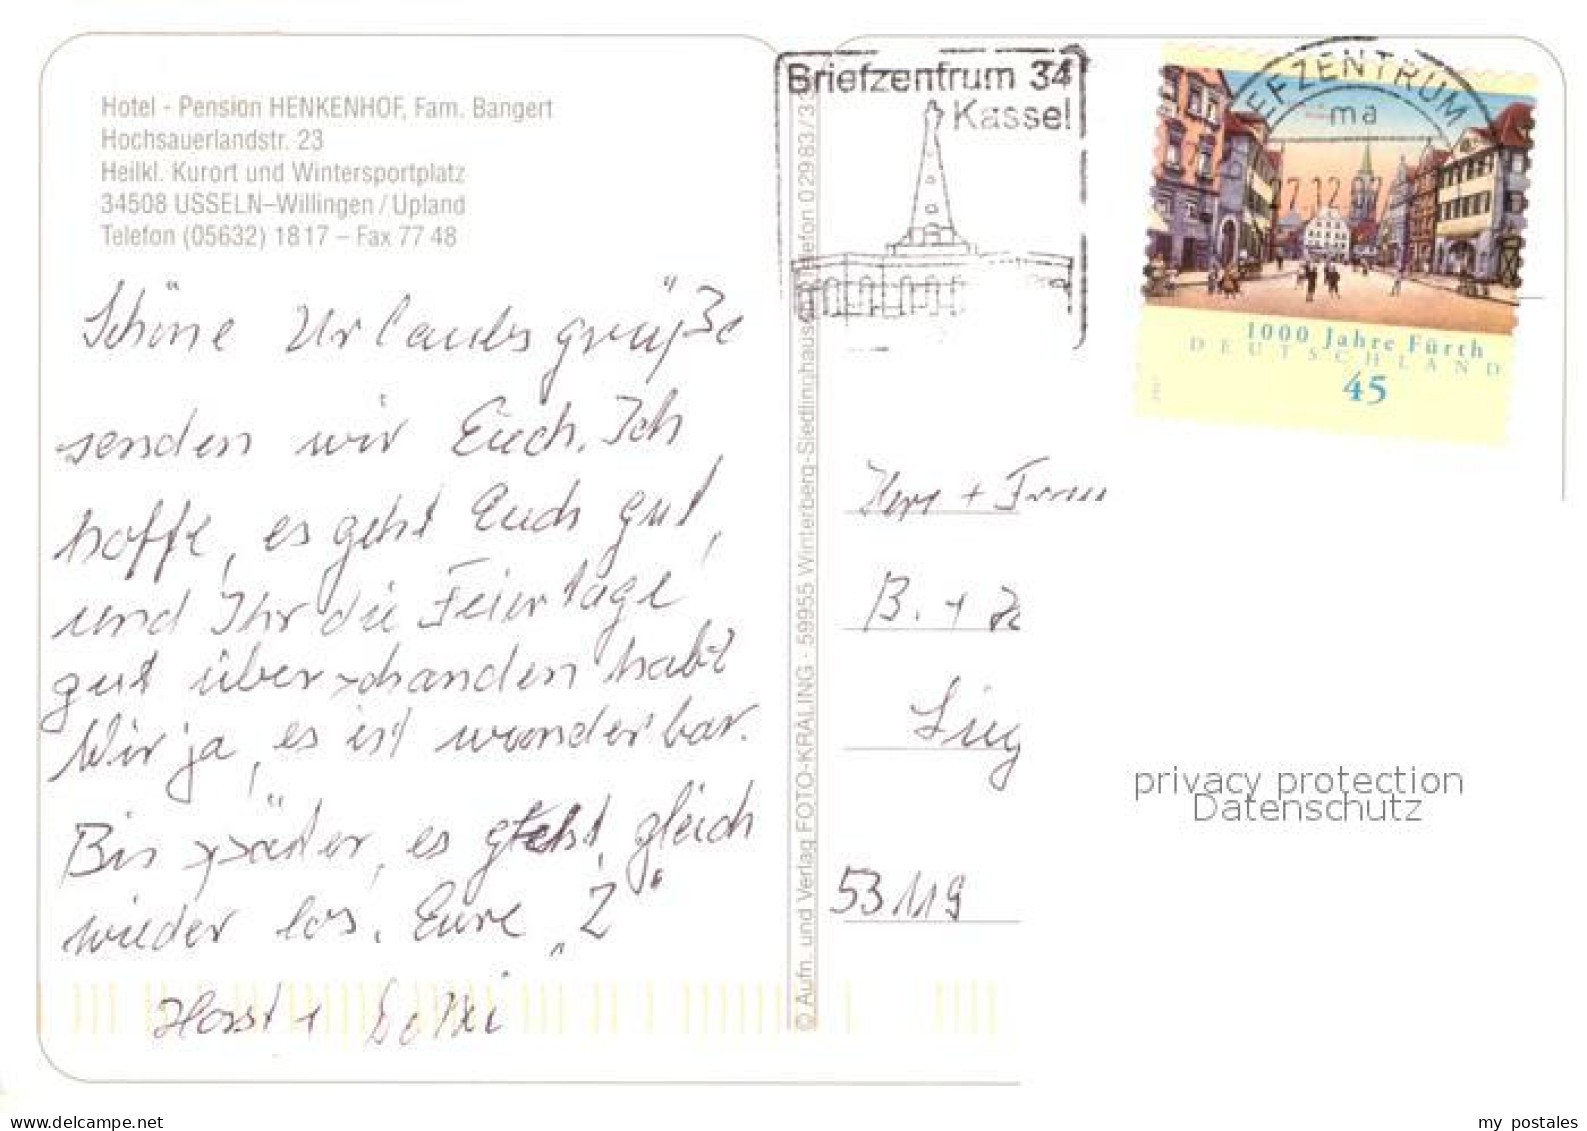 Hotel - Pension HENKENHOF, Fam. Bangert
Hochsauerlandstr. 23
Heilkl. Kurort und Wintersportplatz
34508 USSELN–Willingen / Upland
Telefon (05632) 1817 – Fax 77 48
Schöne Urlaubsgrüße
senden wir Euch. Ich
hoffe, es geht Euch gut,
und Ihr die Feiertage
gut überstanden habt
Wir ja, es ist wunderbar.
Bis später, es geht gleich
wieder los. Eure „2“
Horst +
© Aufn. und Verlag FOTO-KRÄLING · 59955 Winterberg-Siedlinghausen Telefon 02983/3
Briefzentrum 34
Kassel
EFZENTRUM
ma
27.12
1000 Jahre Fürth
DEUTSCHLAND
45
Herr + Frau
B. +
53119
privacy protection
Datenschutz
www.delcampe.net
my_postales